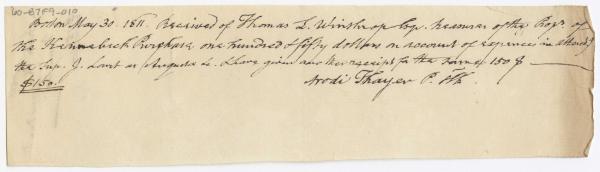 60-87F9-010
Boston May 30. 1811. Received of Thomas L. Winthrop Esq. treasurer of the Propr. of
the Kennebeck Purchase, one hundred & fifty dollars on account of expence in attendg
the Sup. J. Court at Augusta &c. I have given another receipt for the same 150 $
$150.
Arodi Thayer P. Clk